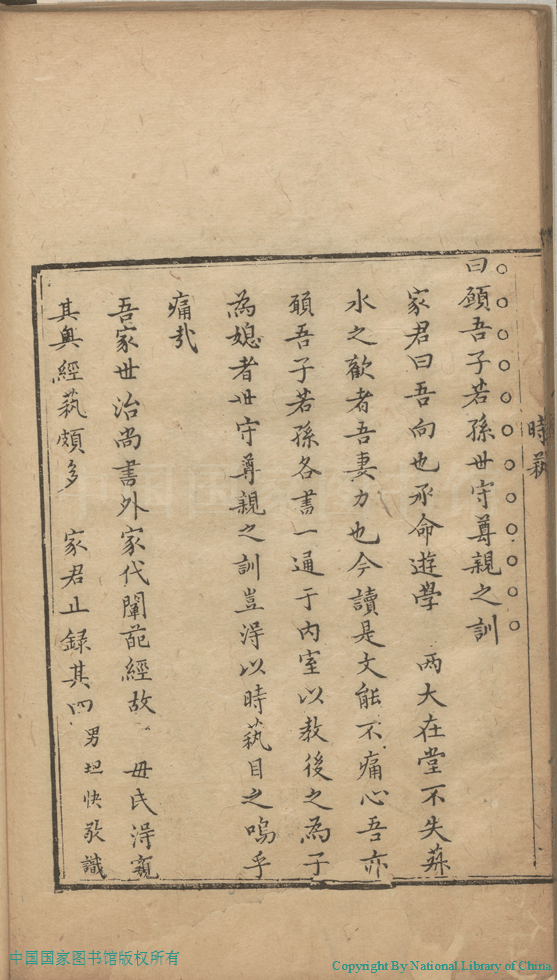 時蓺
曰願吾子若孫世守尊親之訓
家君曰吾向也承命遊學　兩大在堂不失菽
水之歡者吾妻力也今讀是文能不痛心吾亦
願吾子若孫各書一通于內室以教後之為子
為媳者世守尊親之訓豈淂以時蓺目之嗚乎
痛哉
吾家世治尚書外家代闡葩經故　毋氏淂窺
其奧經蓺頗多　家君止録其四男坦快敬識
中国国家图书馆版权所有
Copyright By National Library of China